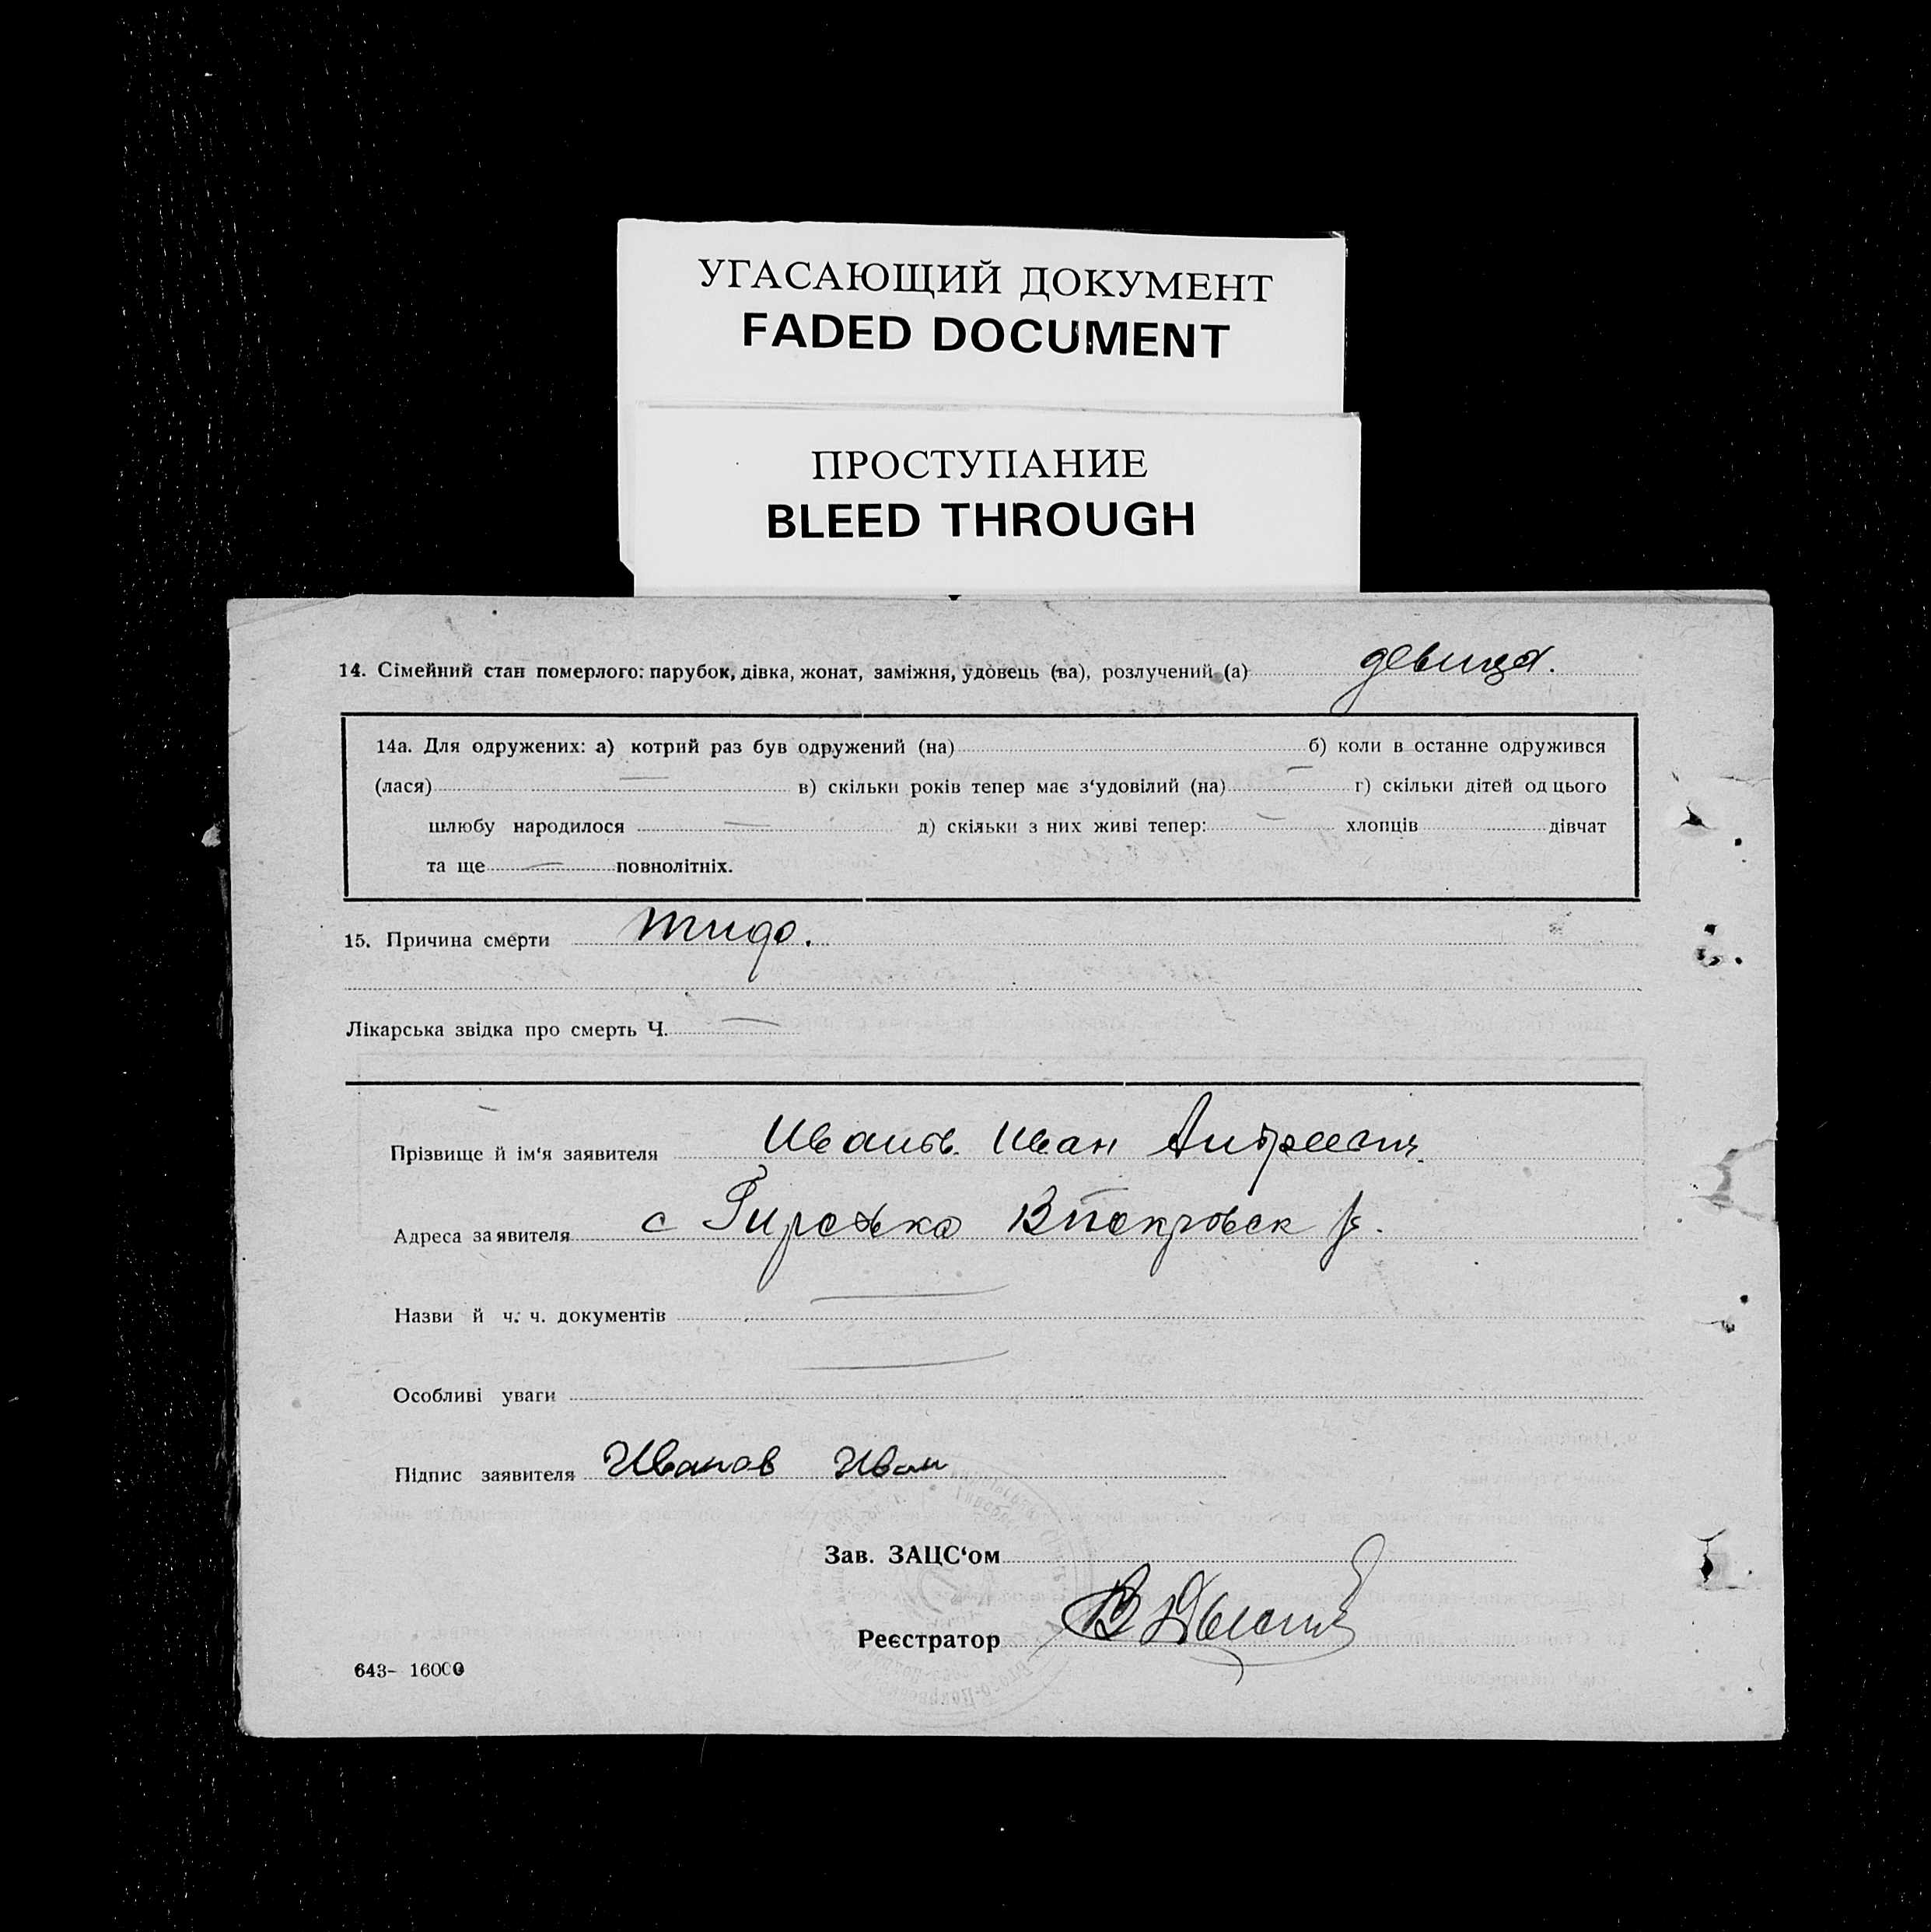 УГАСАЮЩИЙ ДОКУМЕНТ
FADED DOCUMENT
ПРОСТУПАНИЕ
BLEED THROUGH
14. Сімейний стан померлого: парубок, дівка, жонат, заміжня, удовець (ва), розлучений (а) девица.
14а. Для одружених: а) котрий раз був одружений (на) б) коли в останне одружився
(лася) — в) скільки років тепер має з‘удовілий (на) — г) скільки дітей од цього
шлюбу народилося — д) скільки з них живі тепер: — хлопців дівчат
та ще — повнолітніх.
15. Причина смерти
Лікарська звідка про смерть Ч. —
Прізвище й ім‘я заявителя Иванов Иван Андреевич
Адреса заявителя с
Назви й ч. ч. документів —
Особливі уваги —
Підпис заявителя Иванов Иван
Зав. ЗАЦС‘ом
Реєстратор
643- 16000